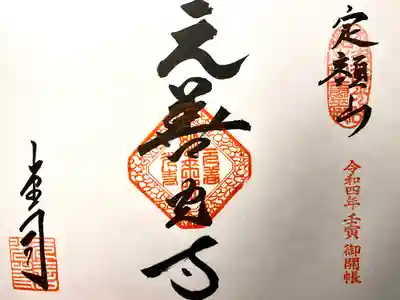 定額山
令和四年 壬寅 御開帳
元善光寺
堂司